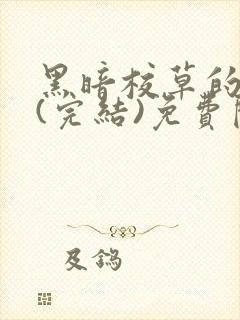 黑暗校草的
(完結)免費
及鎢